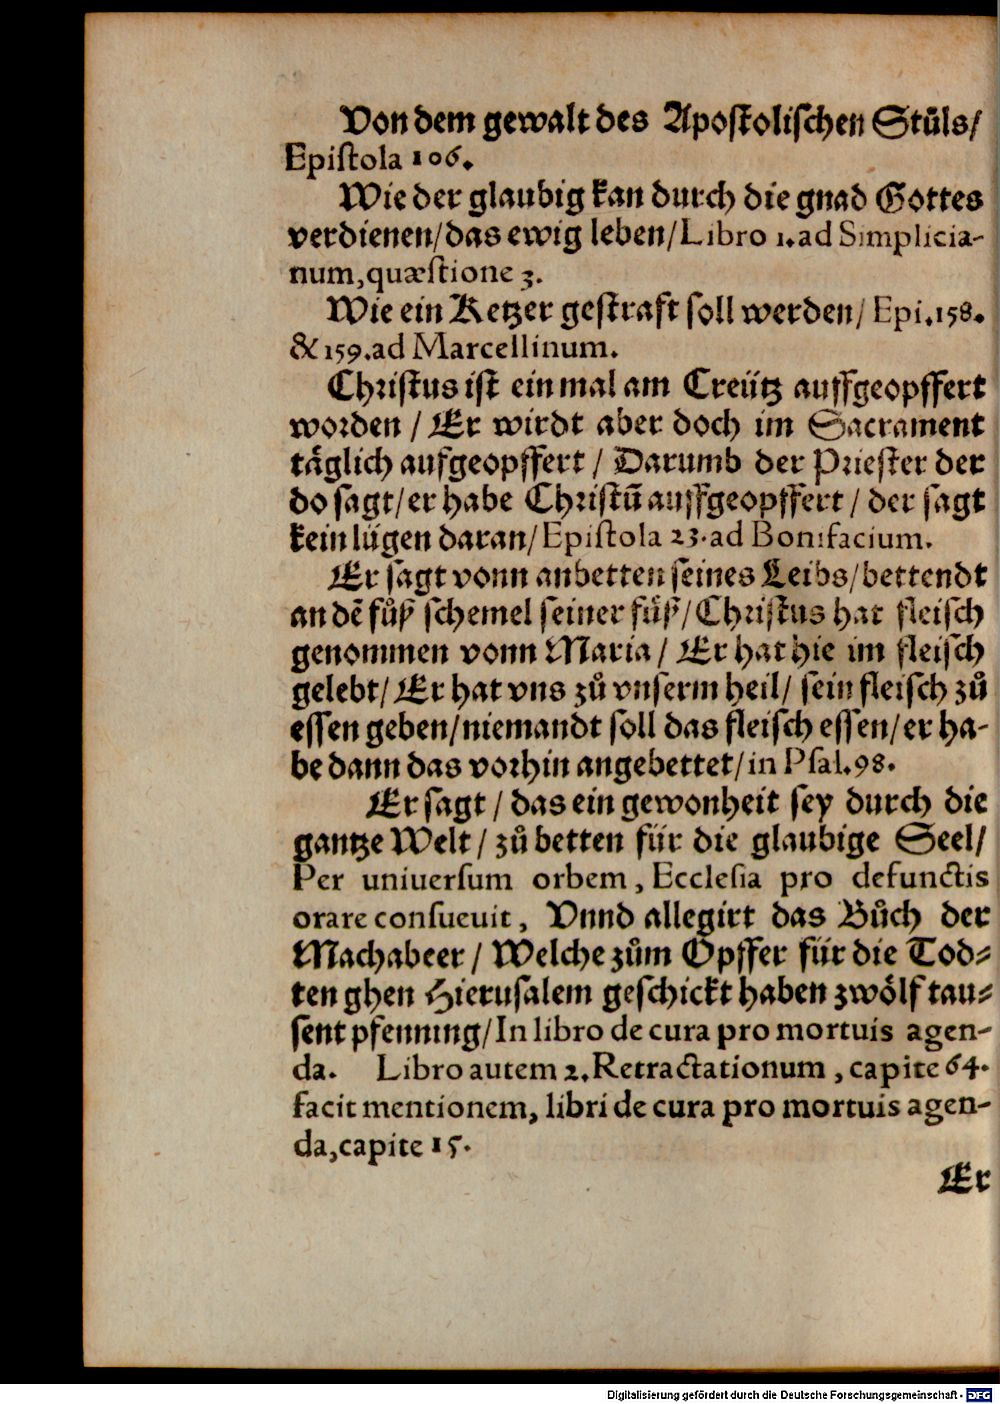 Von dem gewalt des Apostolischen Stůls/
Epiſtola 106.
Wie der glaubig kan durch die gnad Gottes
verdienen/das ewig leben/Libro 1.ad Simplicia-
num,quæſtione 3.
Wie ein Ketzer geſtraft ſoll werden/ Epi.158.
& 159.ad Marcellinum.
Chriſtus iſt ein mal am Creütz auffgeopffert
worden / Er wirdt aber doch im Sacrament
täglich aufgeopffert / Darumb der Prieſter der
do ſagt/er habe Chriſtū auffgeopffert / der ſagt
kein lügen daran/Epiſtola 23.ad Bonifacium.
Er ſagt vonn anbetten ſeines Leibs/bettendt
an dē fůß ſchemel ſeiner füß/Chriſtus hat fleiſch
genommen vonn Maria / Er hat hie im fleiſch
gelebt/Er hat vns zů vnſerm heil/ ſein fleiſch zů
eſſen geben/niemandt ſoll das fleiſch eſſen/er ha-
be dann das vorhin angebettet/in Pſal.98.
Er ſagt / das ein gewonheit ſey durch die
gantze Welt / zů betten für die glaubige Seel/
Per uniuerſum orbem, Eccleſia pro defunctis
orare conſueuit, Vnnd allegirt das Bůch der
Machabeer / Welche zům Opffer für die Tod⸗
ten ghen Hieruſalem geſchickt haben zwölf tau⸗
ſent pfenning/In libro de cura pro mortuis agen-
da. Libro autem 2.Retractationum, capite 64.
facit mentionem, libri de cura pro mortuis agen-
da,capite 15.
Er
Digitalisierung gefördert durch die Deutsche Forschungsgemeinschaft - DFG